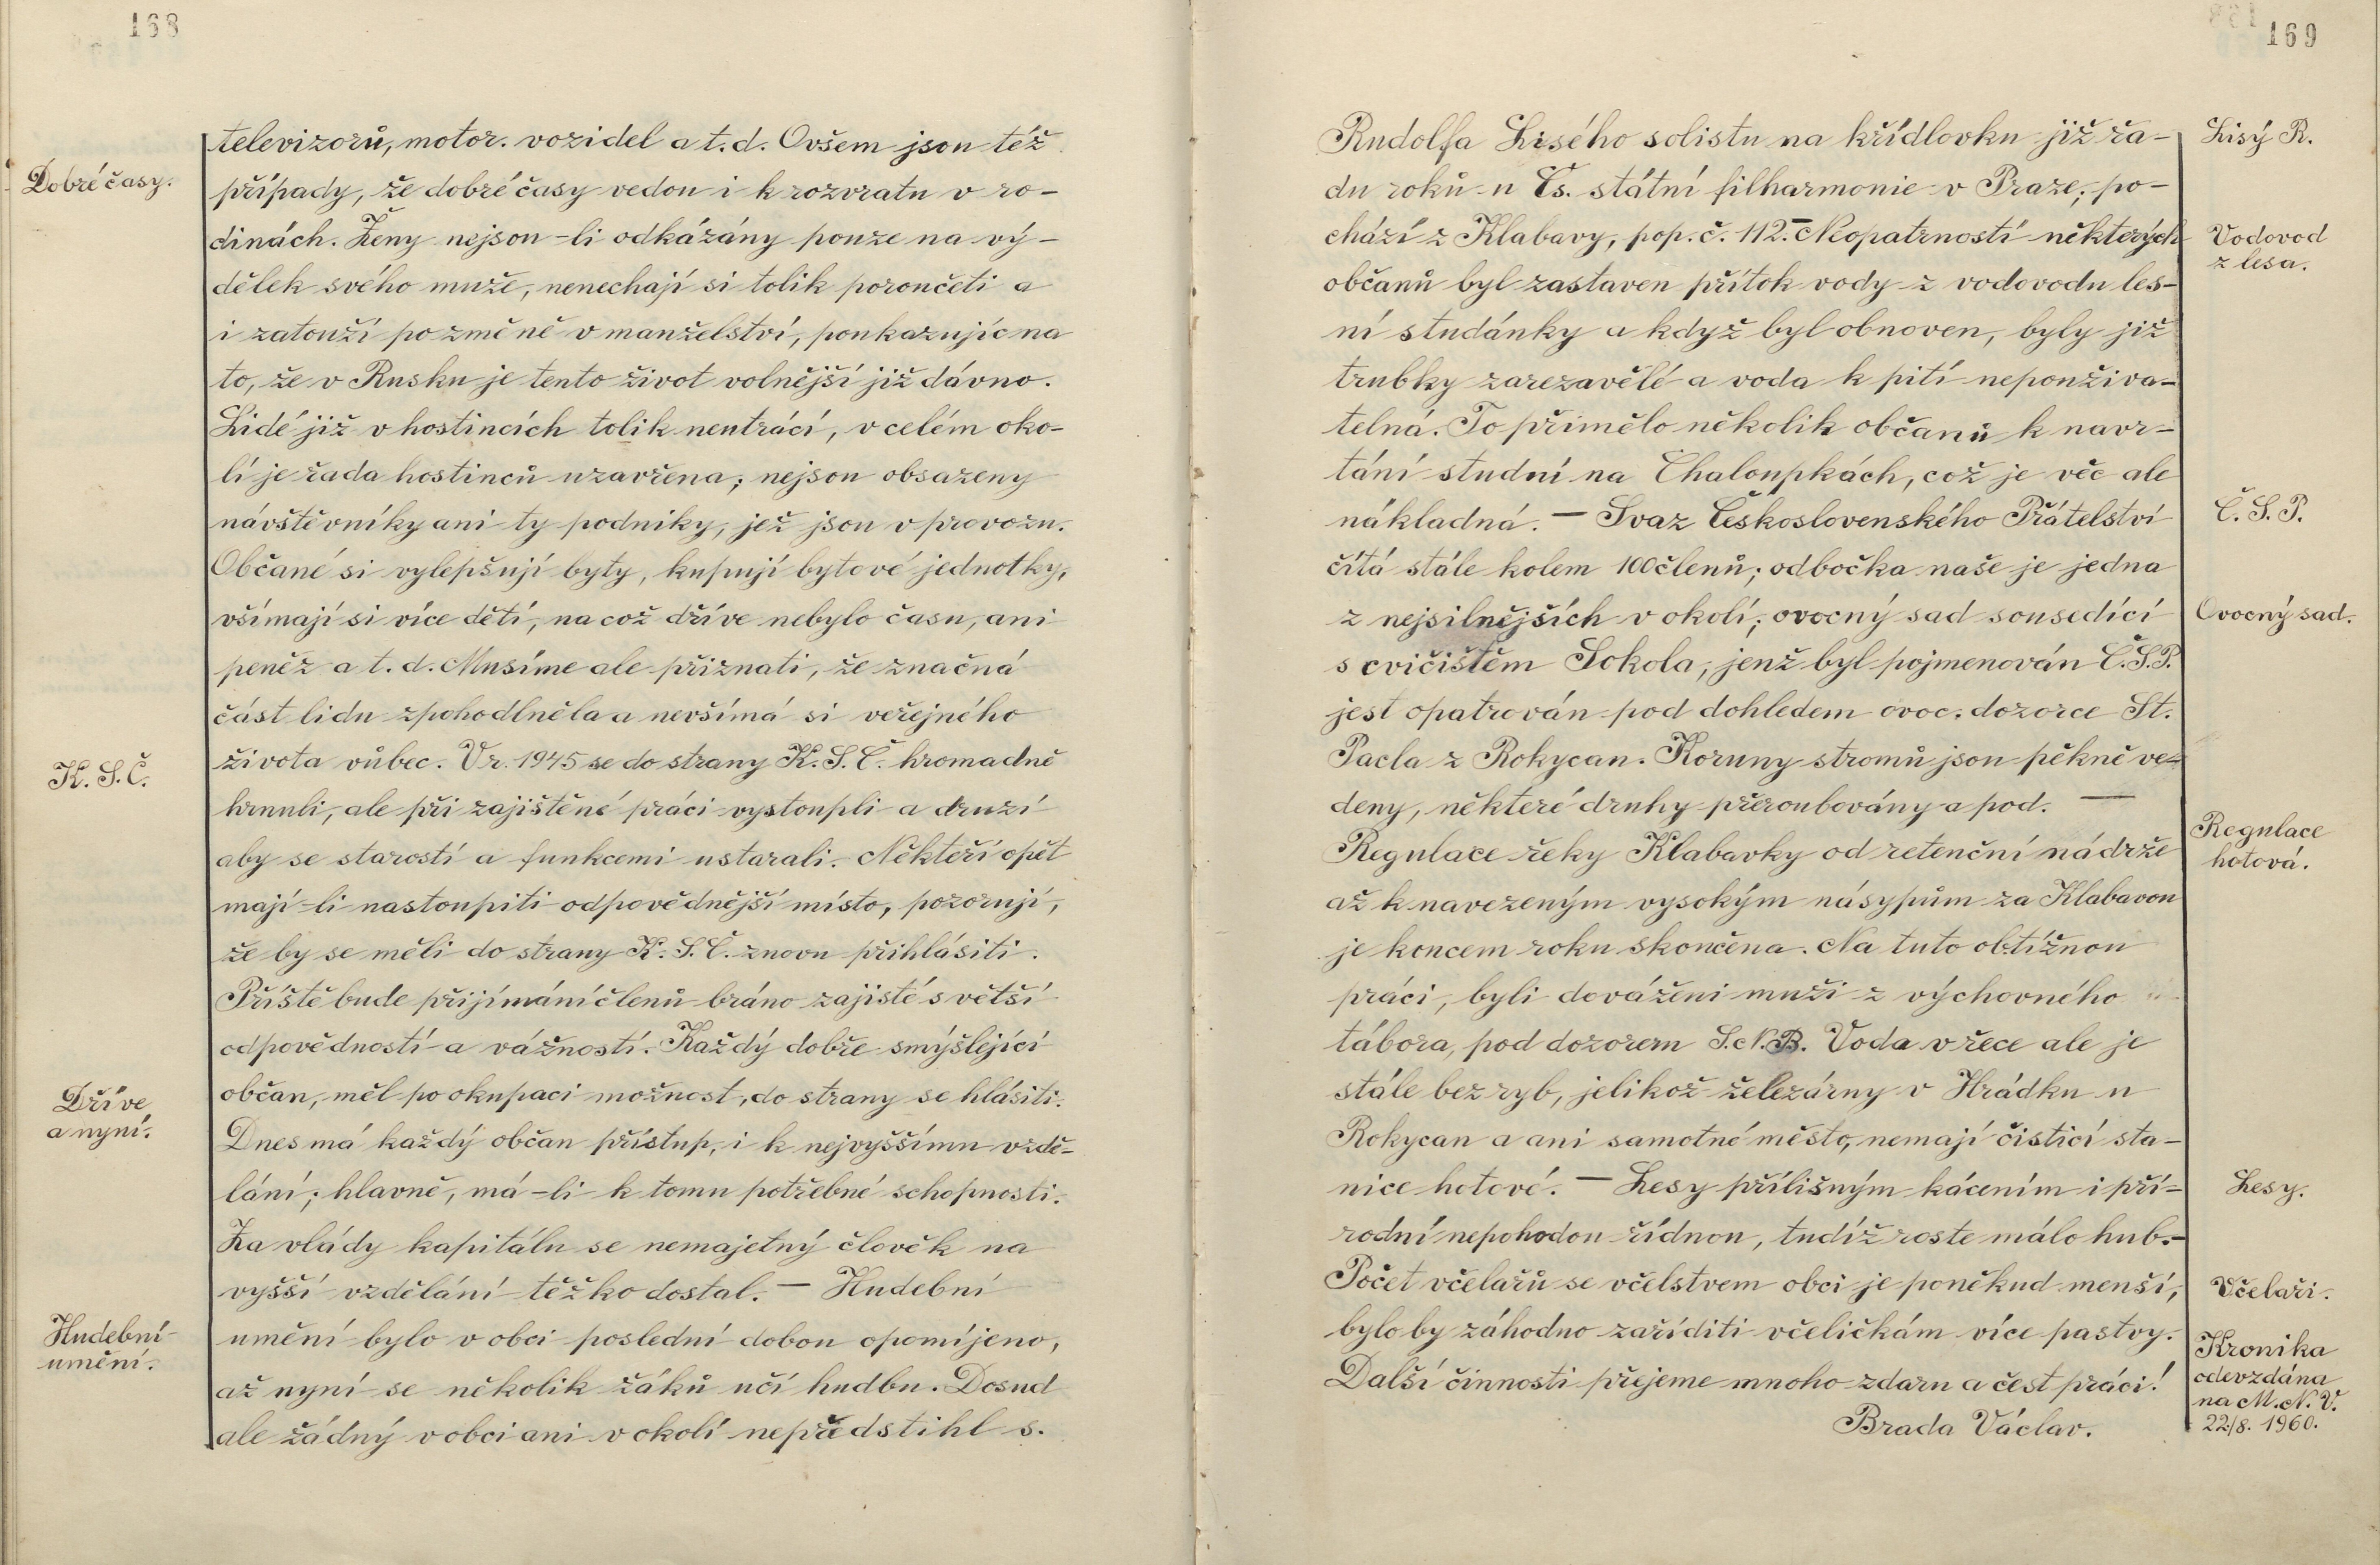 168
Dobré časy.
K. S. Č.
Dříve
a nyní.
Hudební
umění.
televizorů, motor. vozidel a t. d. Ovšem jsou též
případy, že dobré časy vedou i k rozvratu v ro-
dinách. Ženy nejsou-li odkázány pouze na vý-
dělek svého muže, nenechají si tolik poroučeti a
i zatouží po změně v manželství, poukazujíc na
to, že v Rusku je tento život volnější již dávno.
Lidé již v hostincích tolik neutrácí, v celém oko-
lí je řada hostinců uzavřena; nejsou obsazeny
návštěvníky ani ty podniky, jež jsou v provozu.
Občané si vylepšují byty, kupují bytové jednotky,
všímají si více dětí, na což dříve nebylo času, ani
peněz a t. d. Musíme ale přiznati, že značná
část lidu zpohodlněla a nevšímá si veřejného
života vůbec. V r. 1945 se do strany K. S. Č. hromadně
hrnuli, ale při zajištěné práci vystoupli a druzí
aby se starostí a funkcemi ustarali. Někteří opět
mají-li nastoupiti odpovědnější místo, pozorují,
že by se měli do strany K. S. Č. znovu přihlásiti.
Příště bude přijímání členů bráno zajisté s větší
odpovědností a vážností. Každý dobře smýšlející
občan, měl po okupaci možnost, do strany se hlásiti.
Dnes má každý občan přístup, i k nejvyššímu vzdě-
lání; hlavně, má-li k tomu potřebné schopnosti.
Za vlády kapitálu se nemajetný člověk na
vyšší vzdělání těžko dostal. — Hudební
umění bylo v obci poslední dobou opomíjeno,
až nyní se několik žáků učí hudbu. Dosud
ale žádný v obci ani v okolí nepředstihl s.
169
Rudolfa Lisého solistu na křídlovku již řa-
du roků u Čs. státní filharmonie v Praze; po-
chází z Klabavy, pop. č. 112. — Neopatrností některých
občanů byl zastaven přítok vody z vodovodu les-
ní studánky a když byl obnoven, byly již
trubky zarezavělé a voda k pití nepoužíva-
telná. To přimělo několik občanů k navr-
tání studní na Chaloupkách, což je věc ale
nákladná. — Svaz Československého Přátelství
čítá stále kolem 100 členů; odbočka naše je jedna
z nejsilnějších v okolí; ovocný sad sousedící
s cvičištěm Sokola, jenž byl pojmenován Č. S. P.
jest opatrován pod dohledem ovoc. dozorce St.
Pacla z Rokycan. Koruny stromů jsou pěkně ve-
deny, některé druhy přeroubovány a pod. —
Regulace řeky Klabavky od retenční nádrže
až k navezeným vysokým násypům za Klabavou
je koncem roku skončena. Na tuto obtížnou
práci, byli dováženi muži z výchovného
tábora, pod dozorem S. N. B. Voda v řece ale je
stále bez ryb, jelikož železárny v Hrádku u
Rokycan a ani samotné město, nemají čistící sta-
nice hotové. — Lesy přílišným kácením i pří-
rodní nepohodou řídnou, tudíž roste málo hub. —
Počet včelařů se včelstvem obci je poněkud menší,
bylo by záhodno zaříditi včeličkám více pastvy.
Další činnosti přejeme mnoho zdaru a čest práci!
Brada Václav.
Lisý R.
Vodovod
z lesa.
Č. S. P.
Ovocný sad.
Regulace
hotová.
Lesy.
Včelaři.
Kronika
odevzdána
na M. N. V.
22./8. 1960.